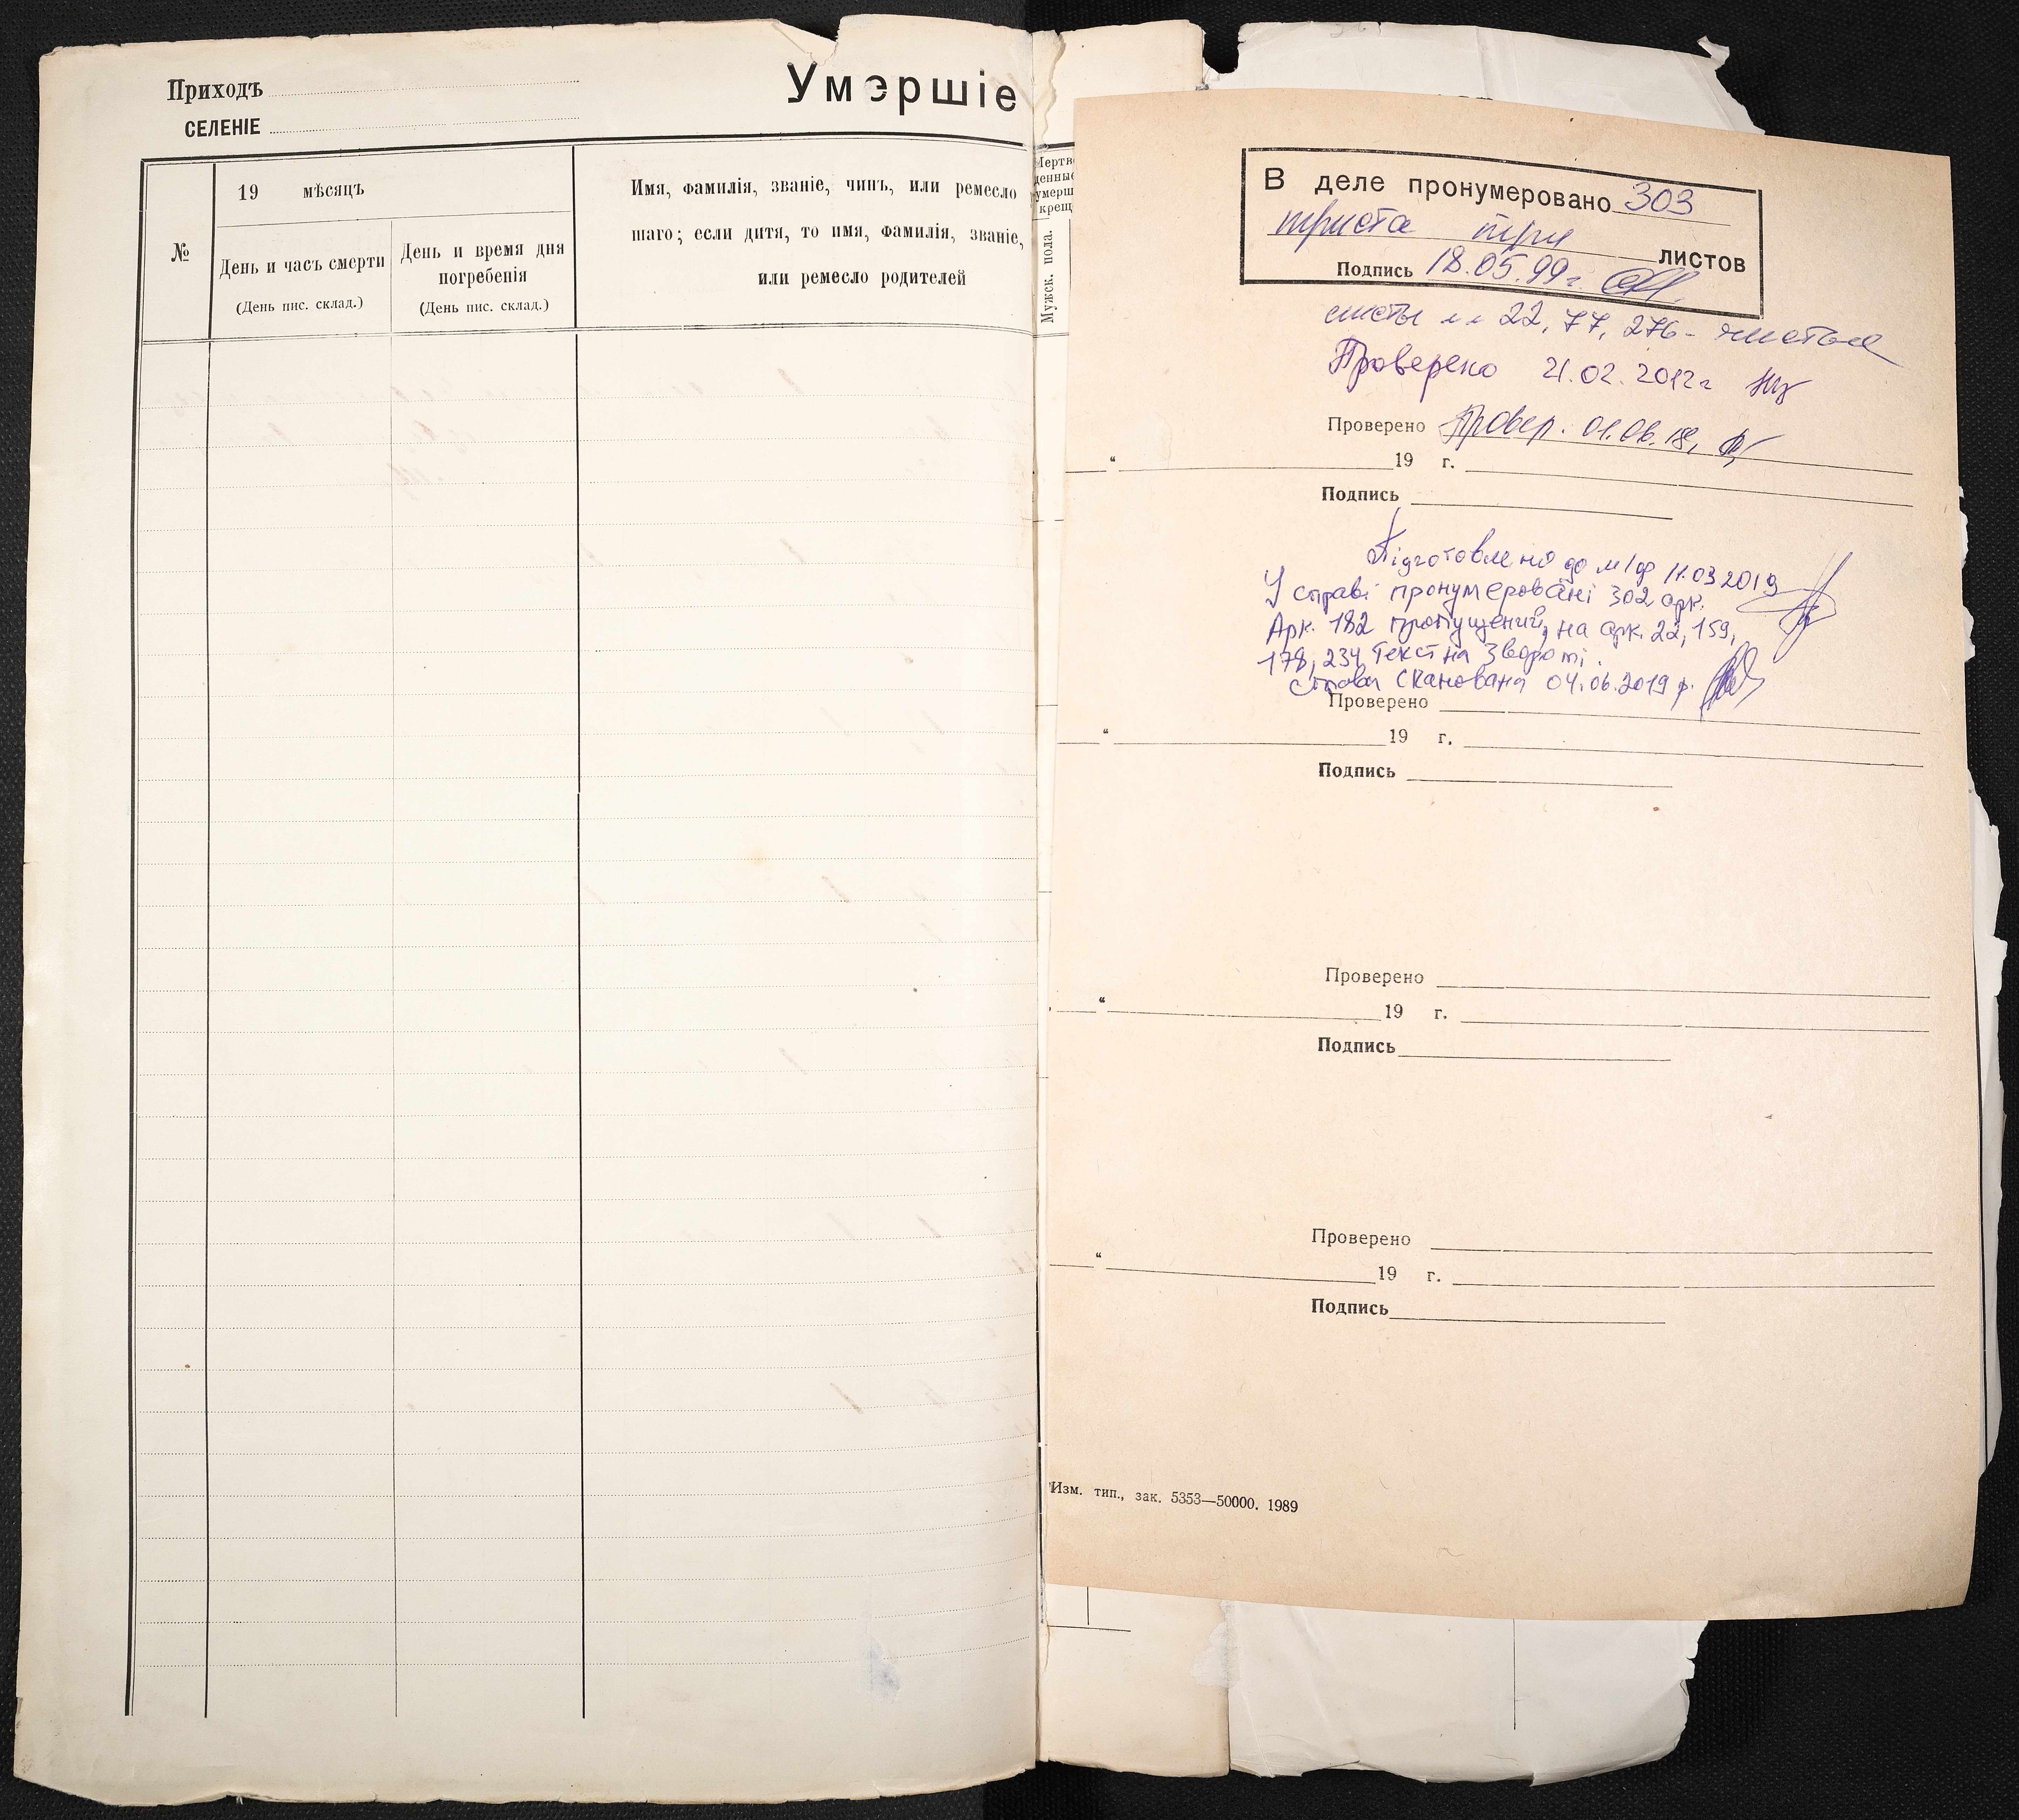 Приходъ
СЕЛЕНІЕ
Умэршіе
№
19 мѣсяцъ
День и часъ смерти
(День пис. склад.)
День и время дня
погребенія
(День пис. склад.)
Имя, фамилія, званіе, чинъ, или ремесло
шаго; если дитя, то имя, фамилія, званіе,
или ремесло родителей
Мужск. пола.
В деле пронумеровано 303
триста три листов
Подпись 18.05.99г.
листы 22, 77, 276 - чистые
Проверено 21.02.2012г
Проверено Провер. 01.06.18,
“ 19 г.
Подпись
Підготовлено до м/ф 11.03 2019
У справі пронумеровані 302 арк.
Арк. 182 пропущений, на арк. 22, 159,
178, 234 текст на звороті.
Справа сканована 04.06.2019 р.
Проверено
“ 19 г.
Подпись
Проверено
“ 19 г.
Подпись
Проверено
“ 19 г.
Подпись
Изм. тип., зак. 5353—50000. 1989